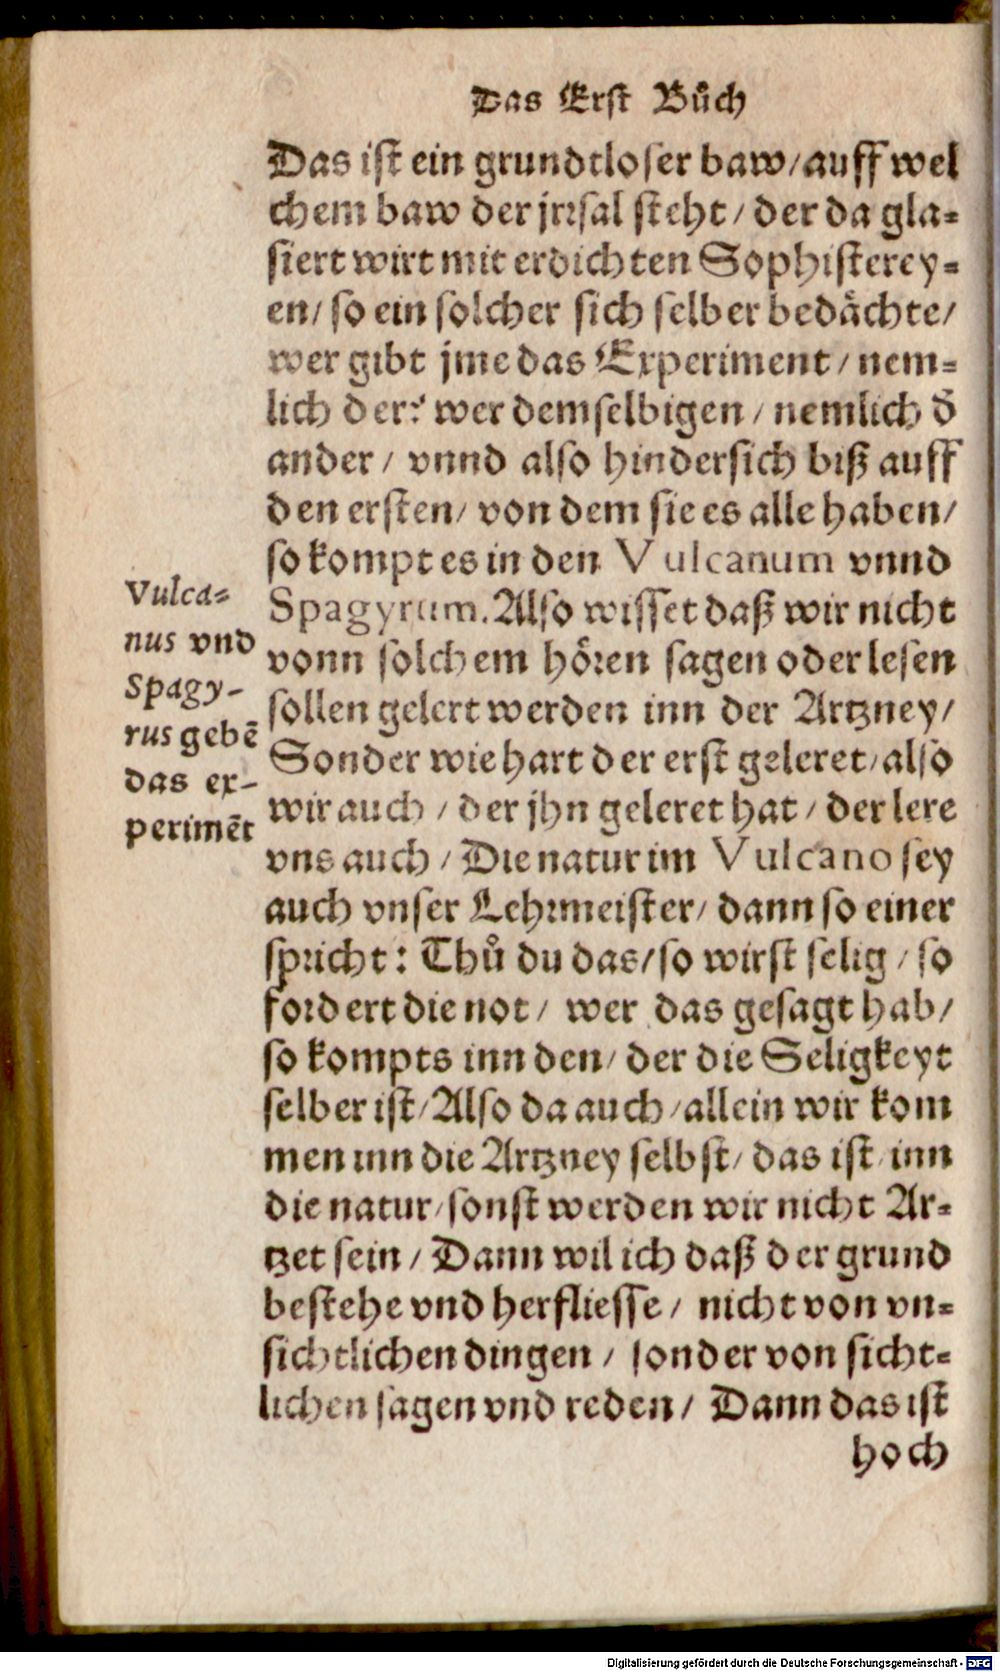 Das Erst Bůch
Das ist ein grundtloser baw/auff wel
chem baw der jrrsal steht/ der da gla-
siert wirt mit erdichten Sophisterey-
en/ so ein solcher sich selber bedächte/
wer gibt jme das Experiment/ nem-
lich der? wer demselbigen/ nemlich d̄
ander/ vnnd also hindersich biß auff
den ersten/ von dem sie es alle haben/
so kompt es in den Vulcanum vnnd
Spagyrum. Also wisset daß wir nicht
vonn solchem hören sagen oder lesen
sollen gelert werden inn der Artzney/
Sonder wie hart der erst geleret/also
wir auch/ der jhn geleret hat/ der lere
vns auch/ Die natur im Vulcano sey
auch vnser Lehrmeister/ dann so einer
spricht: Thů du das/so wirst selig/ so
fordert die not/ wer das gesagt hab/
so kompts inn den/ der die Seligkeyt
selber ist/Also da auch/allein wir kom
men inn die Artzney selbst/ das ist/inn
die natur/sonst werden wir nicht Ar-
tzet sein/ Dann wil ich daß der grund
bestehe vnd herfliesse/ nicht von vn-
sichtlichen dingen/ sonder von sicht-
lichen sagen vnd reden/ Dann das ist
hoch
Vulca-
nus vnd
Spagy-
rus gebē
das ex-
perimēt
Digitalisierung gefördert durch die Deutsche Forschungsgemeinschaft - DFG